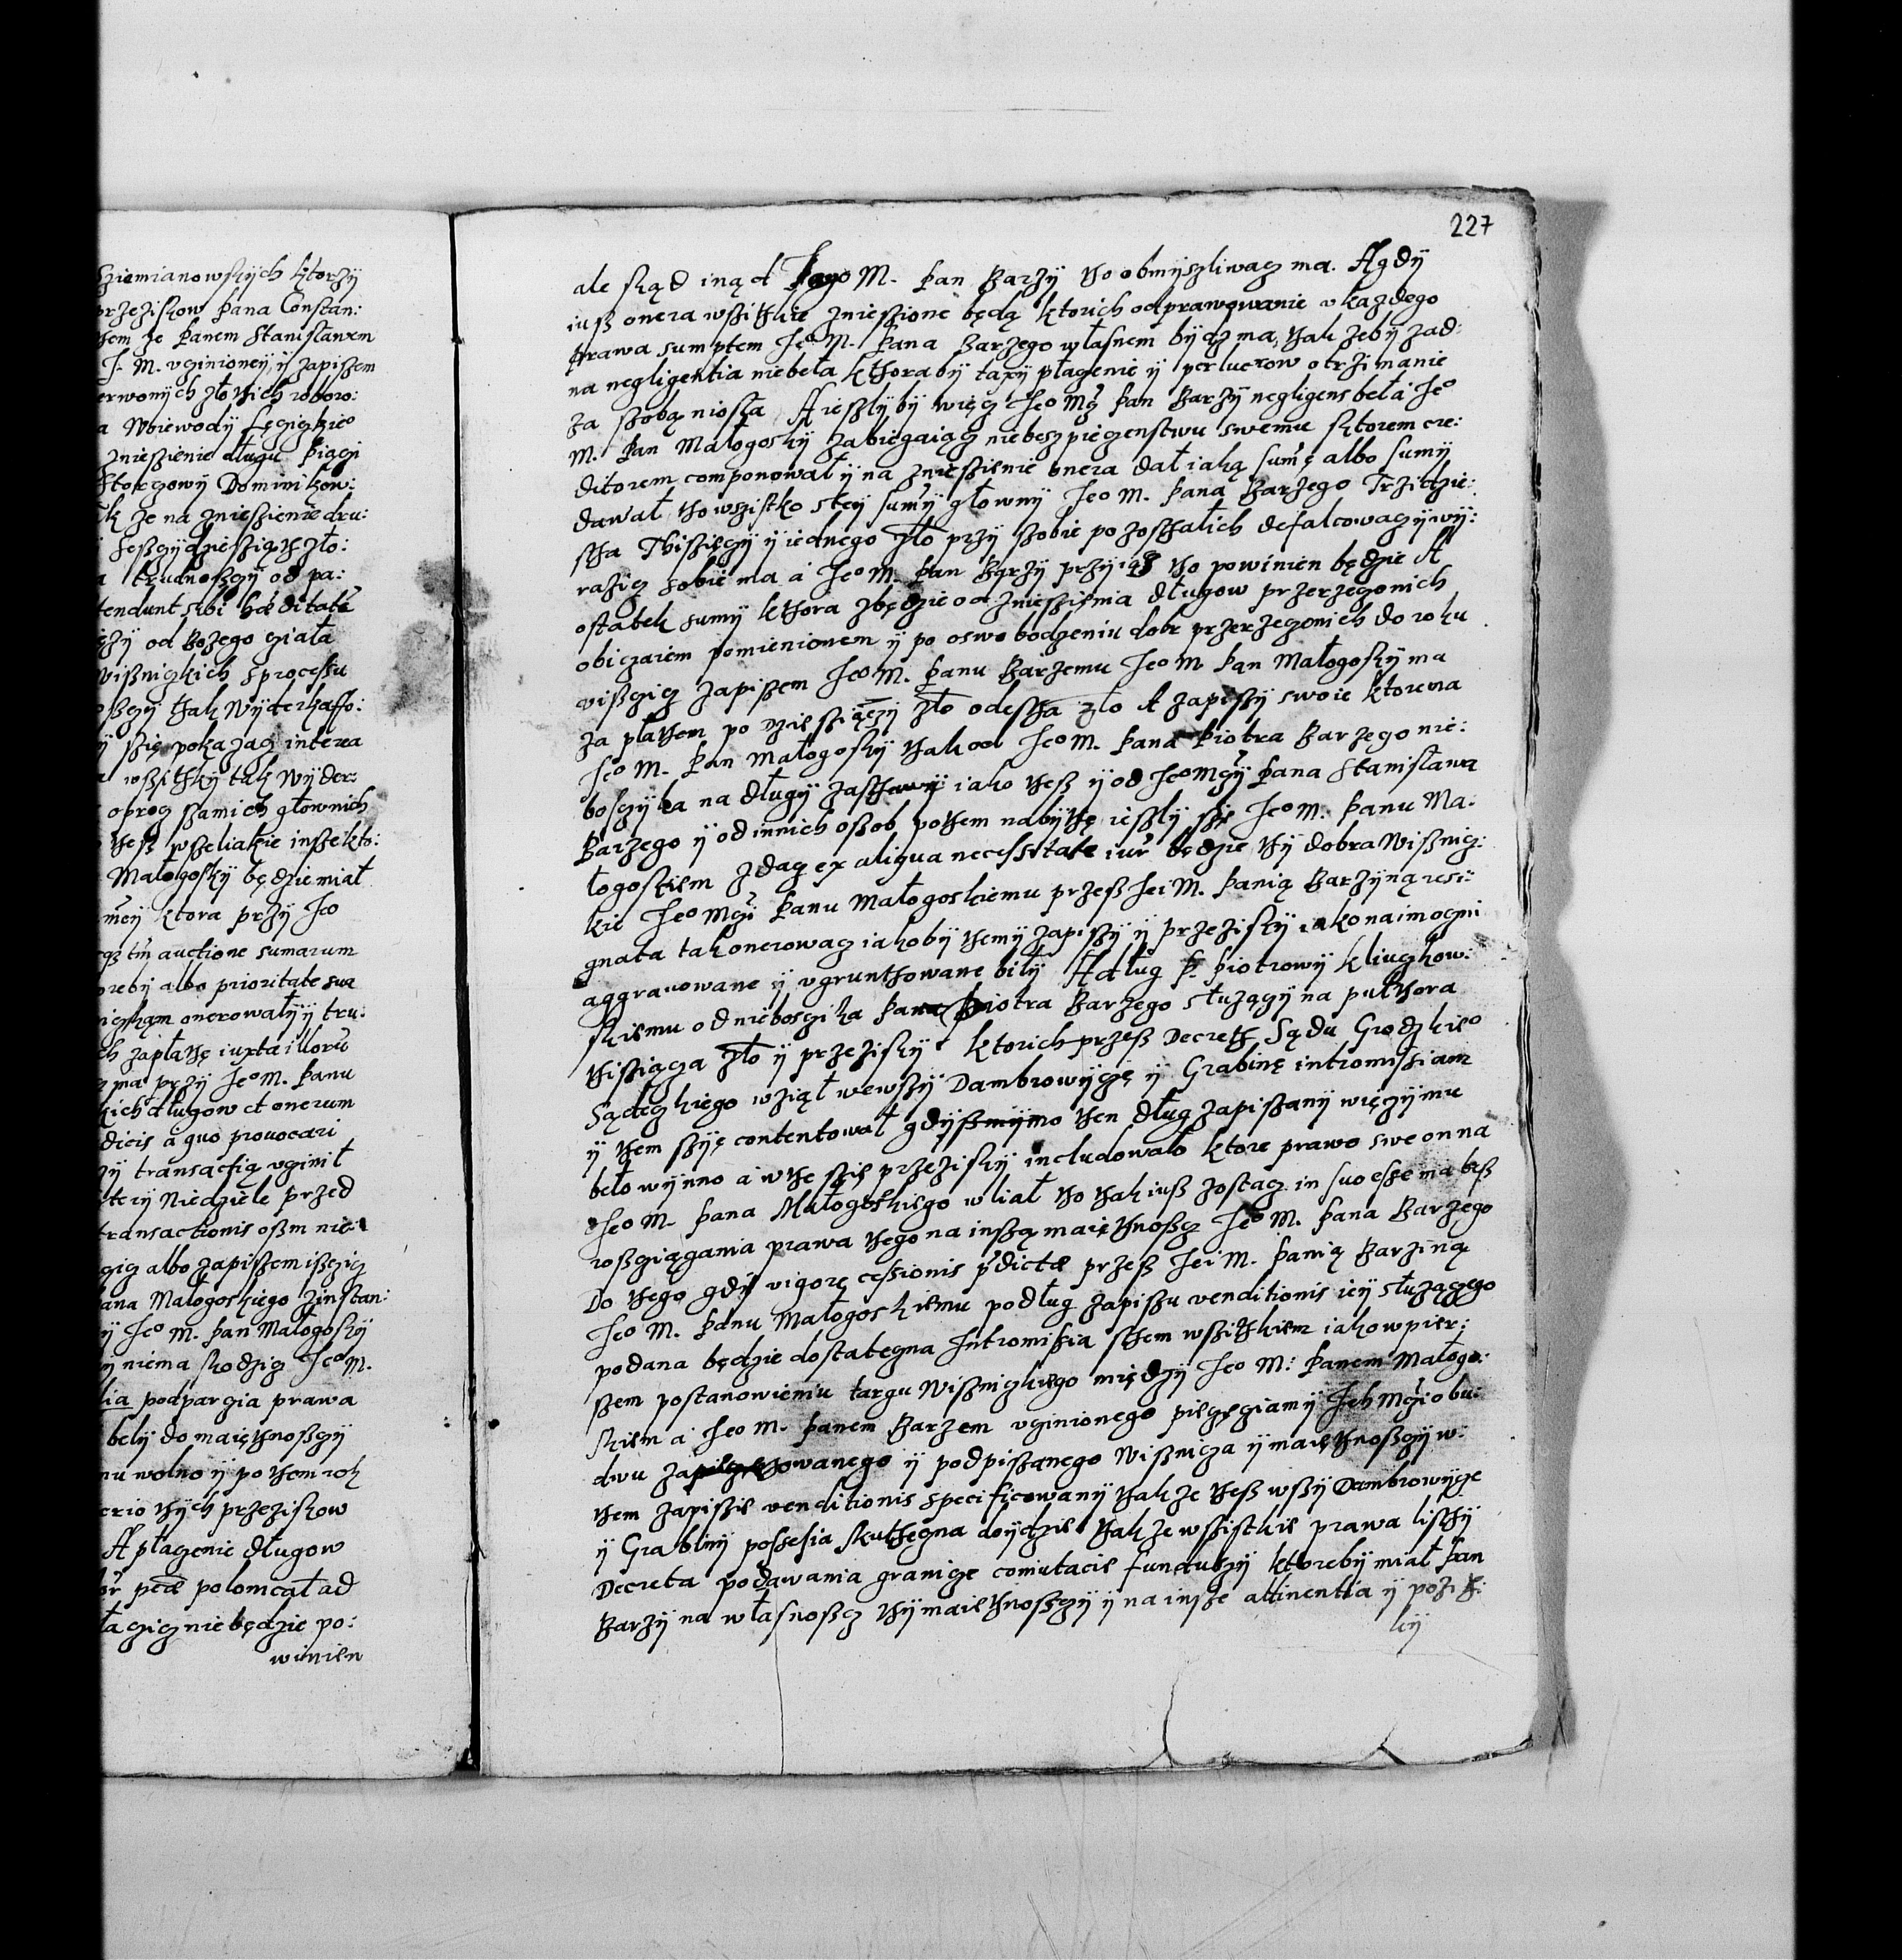 Sziemianowskych ktorzÿ
przeziskow Pana Constan:
them ze Panem Stanisławem
J. M. vcinioneÿ, ÿ zapiszem
erwonÿch zło tich roboro:
a Woiewodÿ Łęcizkieo
znieszienie długu Piąci
Storcowÿ Dominikow:
k ze na znieszienie dru:
seszcÿdzieszięth zło:
trudnoszcÿ od pa:
tendunt sibi hæditate
zÿ od Bozego ciała
Wisznickich sprocessu
oszcÿ thak Wÿderkaffo:
ÿ szię pokazac interea
wszithkÿ tak Wÿder:
oprocz szamich głownich
thesz wszeliakie inszekto:
Małogoskÿ będzie miał
meÿ ktora przÿ Jeo
tm auctione sumarum
orebÿ albo prioritate sua
onerowałÿ ÿ tru:
ch zapłathę iuxta illorū
ma przÿ Jeo M. Panu
kich długow et onerum
dicis a quo prouocari
zÿ transactią vcinił
terÿ Niedziele przed
transactionis osm nie:
cic albo zapiszem iszcic
Pana Małogoskiego zinstan:
ÿ Jeo M. Pan Małogoskÿ
ÿ niema skodzic Jeo M.
lia podparcia prawa
belÿ do maięthnoszcÿ
mu wolno ÿ po them rok
erio thÿch przeziskow
A płacenie długow
pcæ połomcał ad
łacic nie będzie po:
winien
227
ale skąd inąd Jego M. Pan Barzÿ tho obmÿszliwac ma. A gdÿ
iusz onera wszitkie znieszione będą ktorich odprawowanie v kazdego
Prawa sumptem Jeo M. Pana Barzego własnem bÿdz ma, thak zebÿ zad:
na negligentia niebeła kthorabÿ taxÿ płacenie ÿ per lucrow otrzimanie
za szobą niosła A ieszlÿ bÿ więc Jeo Mcz Pan Barzÿ negligens beł a Jeo
M. Pan Małogoskÿ zabiegaiąc niebeszpieczenstwu swemu sktorem cre:
ditorem componował ÿ na znieszienie onera dał iaką sumę albo sumÿ
dawał tho wszistko s teÿ sumÿ głownÿ Jeo M. Pana Barzego Trzidzie:
stha Thisziecÿ ÿ iednego zło przÿ szobie pozosthałich defalcowac ÿ wÿ:
razic sobie ma a Jeo M. Pan Barzÿ przÿiąc tho powinien będzie A
ostatek sumÿ kthora zbędzie od znieszienia długow przerzeconich
obiczaiem pomienionem ÿ po oswobodzeniu dobr przerzeconich do roku
viszcic zapiszem Jeo M. Panu Barzemu Jeo M Pan Małogoskÿ ma
za płathem po dzieszięcÿ zło odestha zło A zapiszÿ swoie ktore ma
Jeo M. Pan Małogoskÿ thak od Jeo M. Pana Piotra Barzego nie:
boszczÿka na długÿ zasthawÿ iako thesz ÿ od Jeo Mczÿ Pana Stanisława
Barzego ÿ od innich oszob pothem nabÿthę ieszlÿ szie Jeo M. Panu Ma:
łogoskiem zdac ex aliqua necessitate iur będzie thÿ dobra Wisznic:
kie Jeo Mczÿ Panu Małogoskiemu przesz Jei M. Panią Barzÿną resi:
gnata tak onerowac iakobÿ themÿ zapiszÿ ÿ przeziskÿ iako naimocni
aggrauowane ÿ vgrunthowane bilÿ A dług P. Piotrowÿ Kliuczkow:
skiemu od nieboszczika Pana Piotra Barzego służącÿ na pulthora
thisziąca zło ÿ przeziskÿ ktorich przesz Decreth Sądu Grodzkieo
Sądeczkiego wziął wewszÿ Dambrowÿcę ÿ Grabinę intromissiam
ÿ them szÿę contentował gdÿsz mÿmo then dług zapiszanÿ więcÿ mu
beło wÿnno a w the szie przeziskÿ includowało ktore prawo swe on na
Jeo M. Pana Małogoskiego wliał tho thak iusz zostac in suo esse ma besz
roszciągania prawa thego na inszą maięthnoszcz Jeo M. Pana Barzego
Do thego gdÿ vigore cessionis pdictæ przesz Jei M. Panią Barziną
Jeo M. Panu Małogoskiemu podług zapiszu venditionis ieÿ służącego
podana będzie dostateczna Intromissia sthem wszithkiem iako w pier:
szem postanowieniu targu Wisznickiego międzÿ Jeo M: Panem Małogo:
skiem a Jeo M. Panem Barzem vcinionego pieczęciamÿ Ich Mczi obu:
dwu zapieczęthowanego ÿ podpiszanego Wisznicza ÿ maięthnoszcÿ w:
them zapiszie venditionis specificowanÿ thakze thesz wszÿ Dambrowÿce
ÿ Grabinÿ possesia skutheczna doÿdzie thakze wszistkie prawa listhÿ
Decreta podawania granice comutacie funduszÿ ktorebÿ miał Pan
Barzÿ na własnoszcz thÿ maiethnoszczÿ ÿ na insze attinentia ÿ pozit:
kÿ